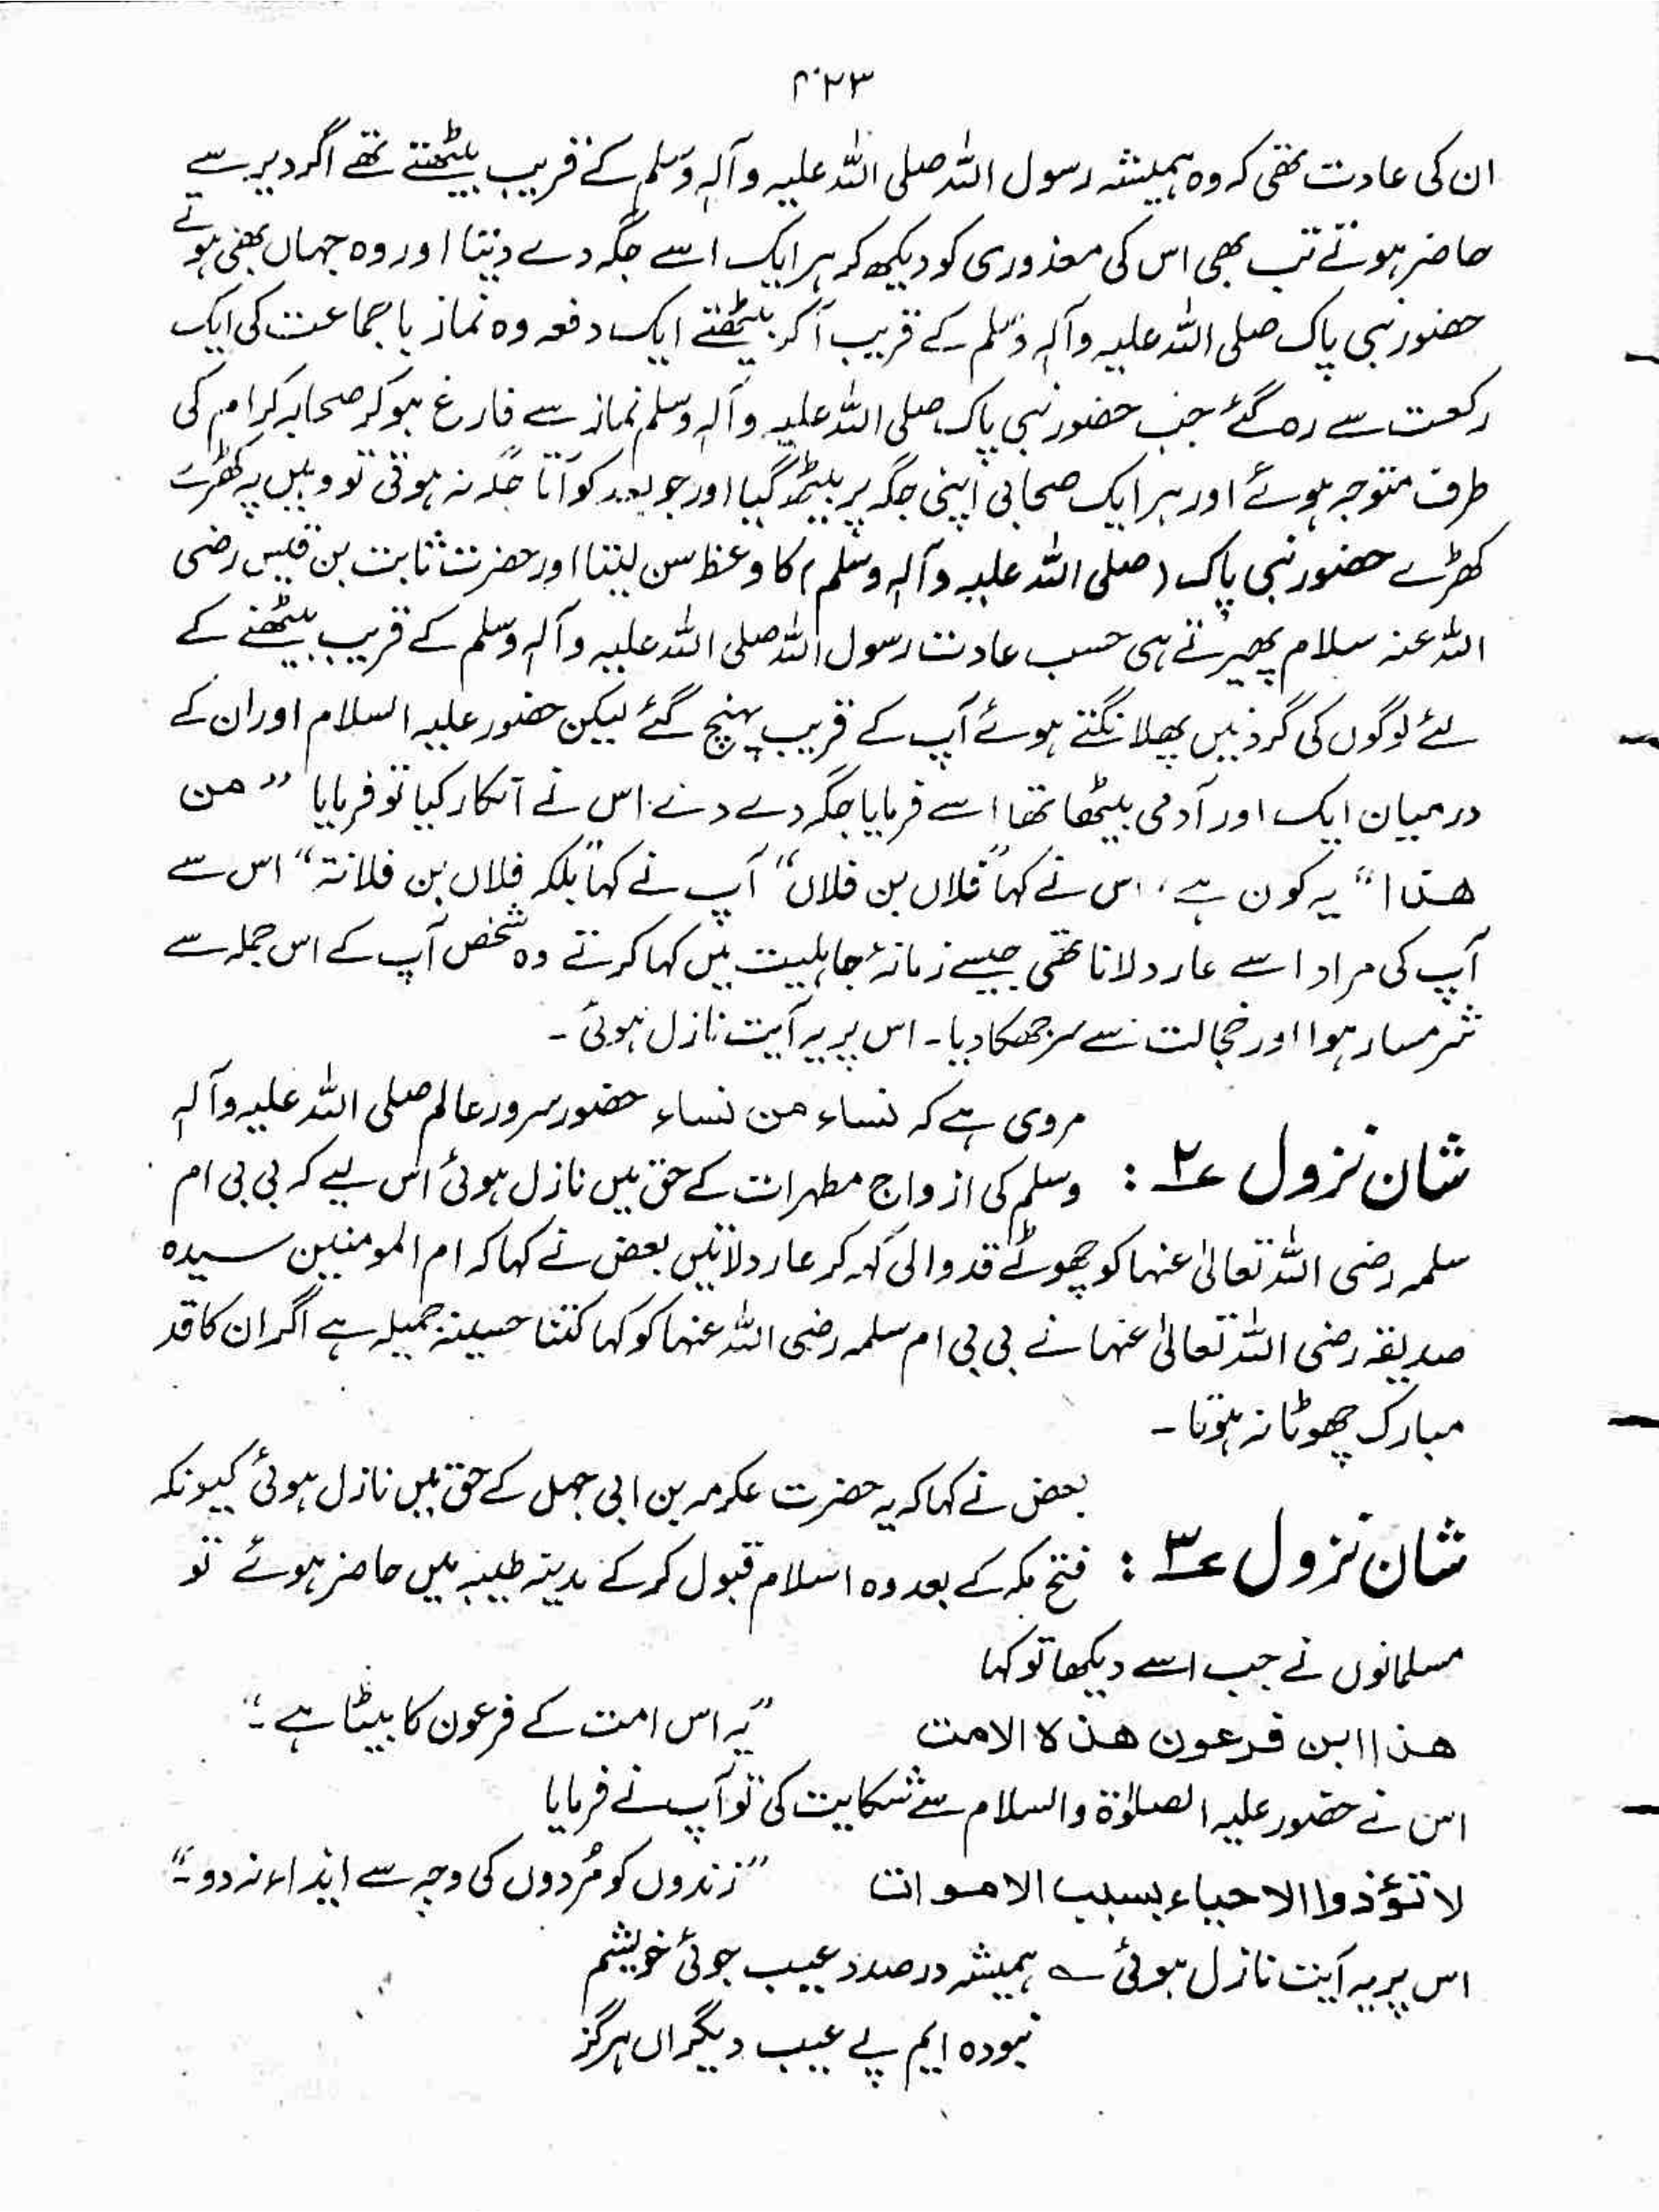 ان کی عادت تھی کہ وہ ہمیشہ رسول اللہ صلی اللہ علیہ وآلہ وسلم کے قریب بیٹھتے تھے اگر دیر سے
حاضر ہوتے تب بھی اس کی معذوری کو دیکھ کر ہر ایک اسے جگہ دے دیتا اور وہ جہاں بھی ہوتے
حضور نبی پاک صلی اللہ علیہ وآلہ وسلم کے قریب آ کر بیٹھتے ایک دفعہ وہ نماز باجماعت کی ایک
رکعت سے رہ گئے جب حضور نبی پاک صلی اللہ علیہ وآلہ وسلم نماز سے فارغ ہو کر صحابہ کرام کی
طرف متوجہ ہوئے اور ہر ایک صحابی اپنی جگہ پر بیٹھ گیا اور جو بعد کو آتا جگہ نہ ہوتی تو وہیں پہ کھڑے
کھڑے حضور نبی پاک (صلی اللہ علیہ وآلہ وسلم) کا وعظ سن لیتا اور حضرت ثابت بن قیس رضی
اللہ عنہ سلام پھیرتے ہی حسب عادت رسول اللہ صلی اللہ علیہ وآلہ وسلم کے قریب بیٹھنے کے
لئے لوگوں کی گردنیں پھلانگتے ہوئے آپ کے قریب پہنچ گئے لیکن حضور علیہ السلام اور ان کے
درمیان ایک اور آدمی بیٹھا تھا اسے فرمایا جگہ دے دے اس نے انکار کیا تو فرمایا ”من
ھذا“ یہ کون ہے، اس نے کہا ”فلاں بن فلاں“ آپ نے کہا ”بلکہ فلاں بن فلانۃ“ اس سے
آپ کی مراد اسے عار دلانا تھی جیسے زمانۂ جاہلیت میں کہا کرتے وہ شخص آپ کے اس جملہ سے
شرمسار ہوا اور خجالت سے سر جھکا دیا۔ اس پر یہ آیت نازل ہوئی۔
شان نزول ؏۲ :
مروی ہے کہ نساء من نساء حضور سرور عالم صلی اللہ علیہ وآلہ
وسلم کی ازواج مطہرات کے حق میں نازل ہوئی اس لیے کہ بی بی ام
سلمہ رضی اللہ تعالیٰ عنہا کو چھوٹے قد والی کہہ کر عار دلاتیں بعض نے کہا کہ ام المومنین سیدہ
صدیقہ رضی اللہ تعالیٰ عنہا نے بی بی ام سلمہ رضی اللہ عنہا کو کہا کتنا حسینہ جمیلہ ہے اگر ان کا قد
مبارک چھوٹا نہ ہوتا۔
شان نزول ؏۳ :
بعض نے کہا کہ یہ حضرت عکرمہ بن ابی جہل کے حق میں نازل ہوئی کیونکہ
فتح مکہ کے بعد وہ اسلام قبول کر کے مدینہ طیبہ میں حاضر ہوئے تو
مسلمانوں نے جب اسے دیکھا تو کہا
ھذا ابن فرعون ھذہ الامت ”یہ اس امت کے فرعون کا بیٹا ہے۔“
اس نے حضور علیہ الصلوٰۃ والسلام سے شکایت کی تو آپ نے فرمایا
لا تؤذوا الاحیاء بسبب الاموات ”زندوں کو مُردوں کی وجہ سے ایذاء نہ دو۔“
اس پر یہ آیت نازل ہوئی ؎ ہمیشہ در صدد عیب جوئی خویشم
نبودہ ایم پے عیب دیگراں ہرگز